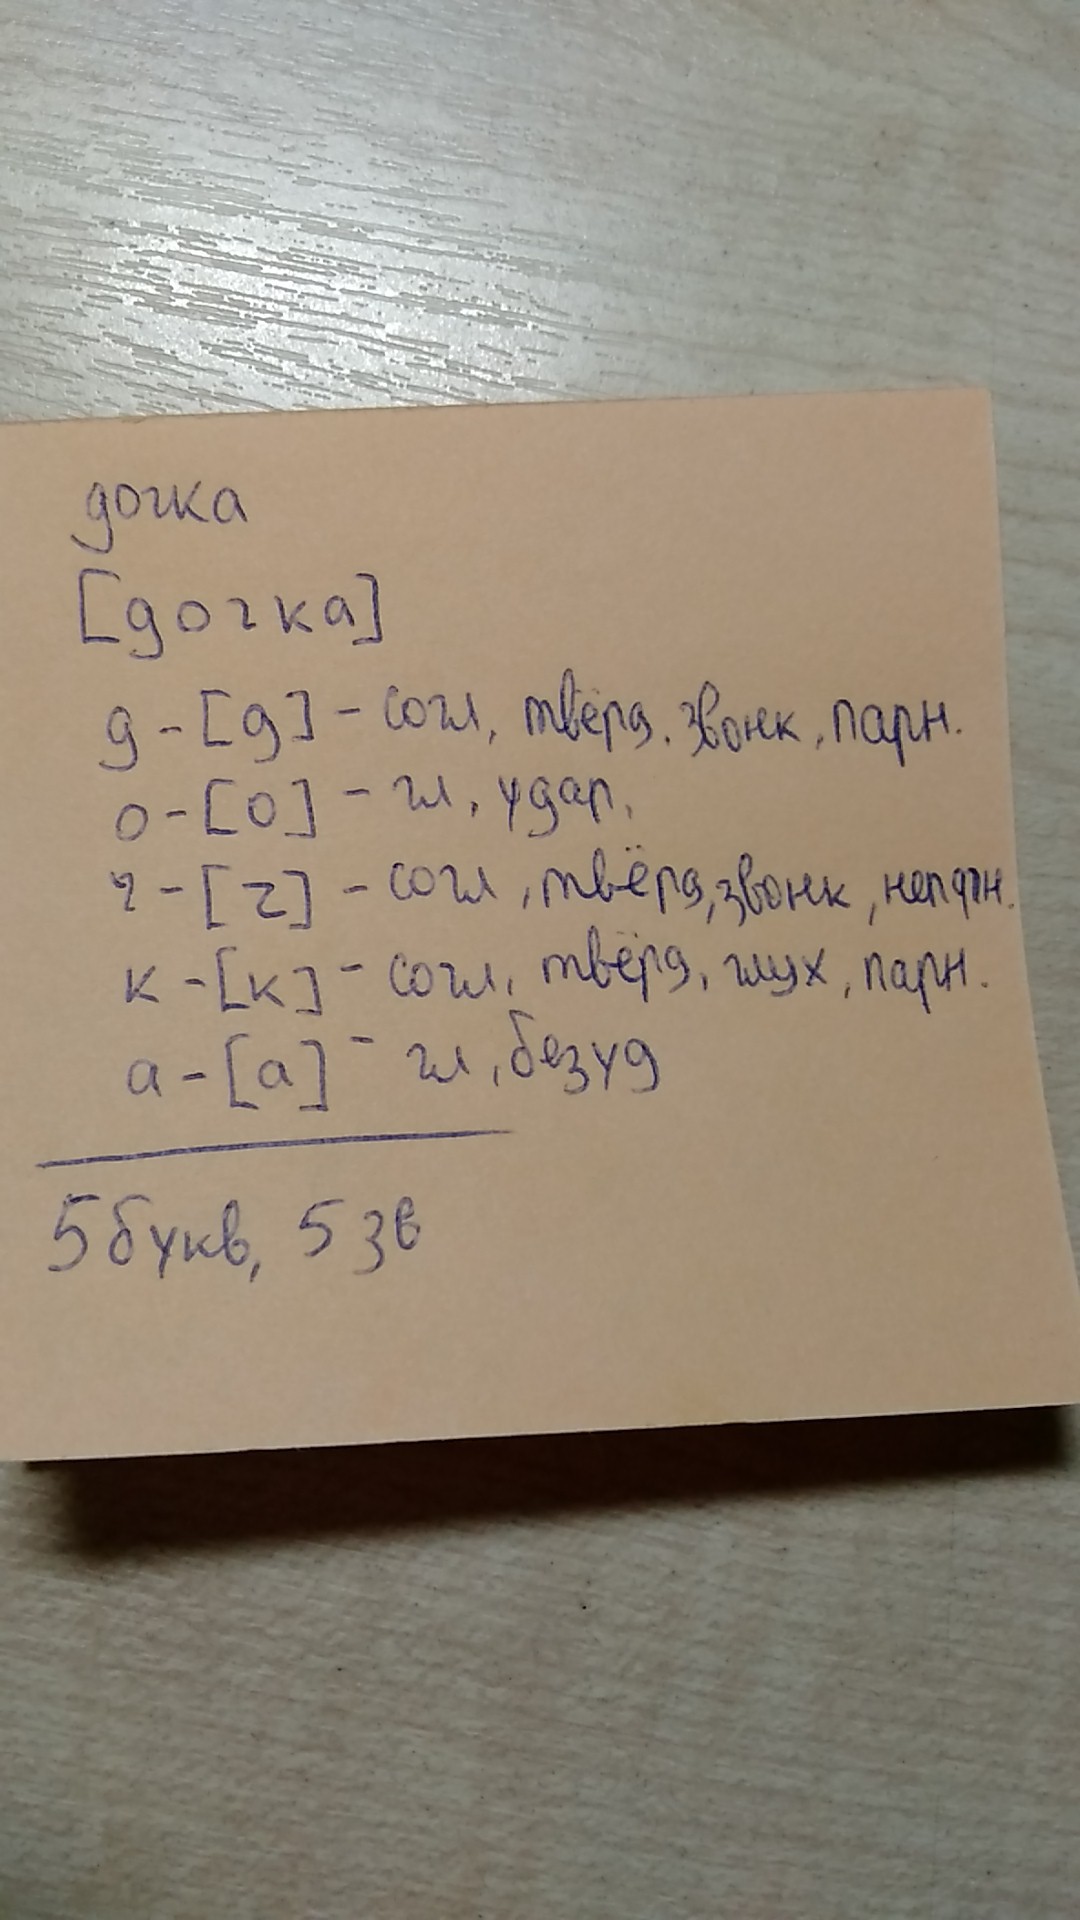 дочка
[дочка]
д-[д]-согл, твёрд. звонк, парн.
о-[о]-гл, удар,
ч-[ч]-согл, твёрд, звонк, непарн.
к-[к]-согл, твёрд, глух, парн.
а-[а]-гл, безуд
5 букв, 5 зв